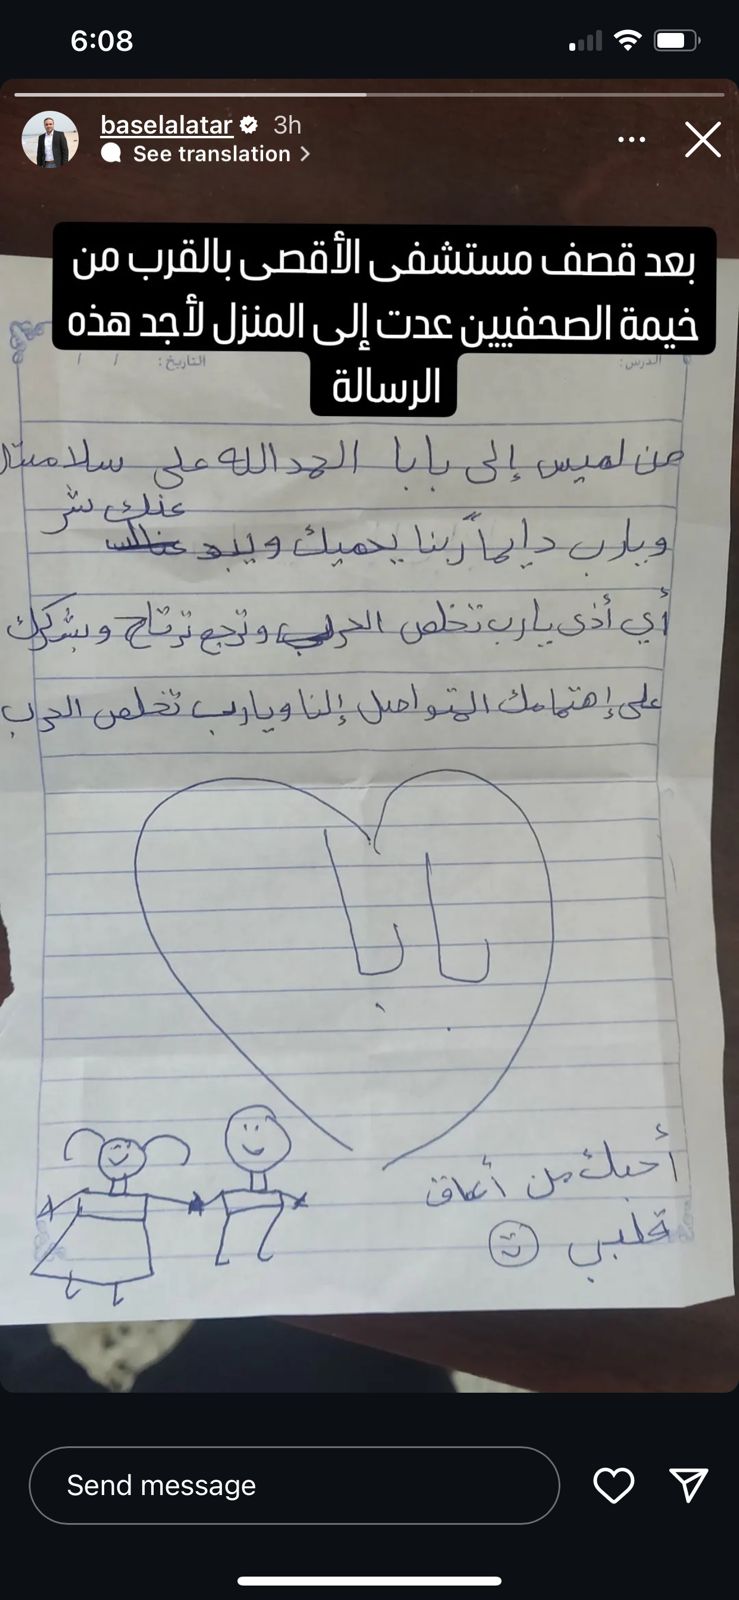 6:08
baselalatar 3h
See translation >
بعد قصف مستشفى الأقصى بالقرب من
خيمة الصحفيين عدت إلى المنزل لأجد هذه
الرسالة
الدرس: التاريخ: / /
من لميس إلى بابا الحمدالله على سلامتك
ويارب دايماً ربنا يحميك ويبعد عنك شر
أي أذى يارب تخلص الحرب وترجع ترتاح وبشكرك
على إهتمامك المتواصل إلنا ويارب تخلص الحرب
بابا
أحبك من أعماق
قلبي
Send message